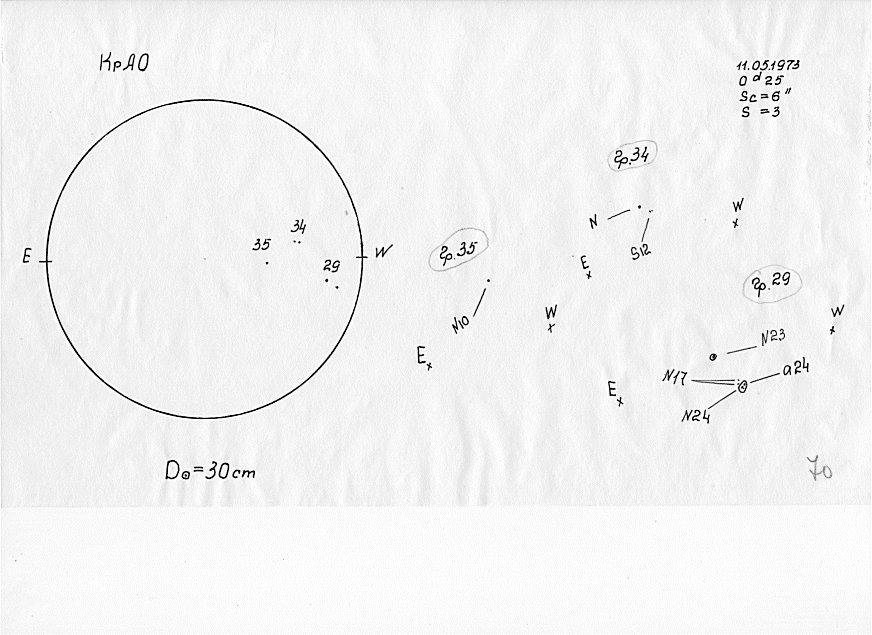 КрАО
11.05.1973
0 d 25
Sc = 6"
S = 3
гр.34
W
N
S12
E
34
35
29
E
W
гр.35
N10
W
E
гр.29
W
N23
N17
a24
E
N24
D⊙=30cm
70